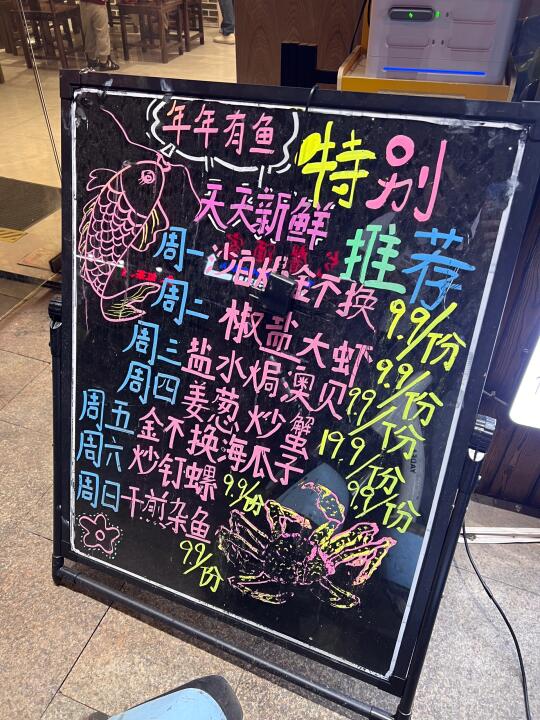 年年有鱼
特别
天天新鲜
推荐
周一 沙白 金不换 9.9/份
周二 椒盐大虾 9.9/份
周三 盐水焗澳贝 9.9/份
周四 姜葱炒蟹 19.9/份
周五 金不换海瓜子 9.9/份
周六 炒钉螺 9.9/份
周日 干煎杂鱼 9.9/份